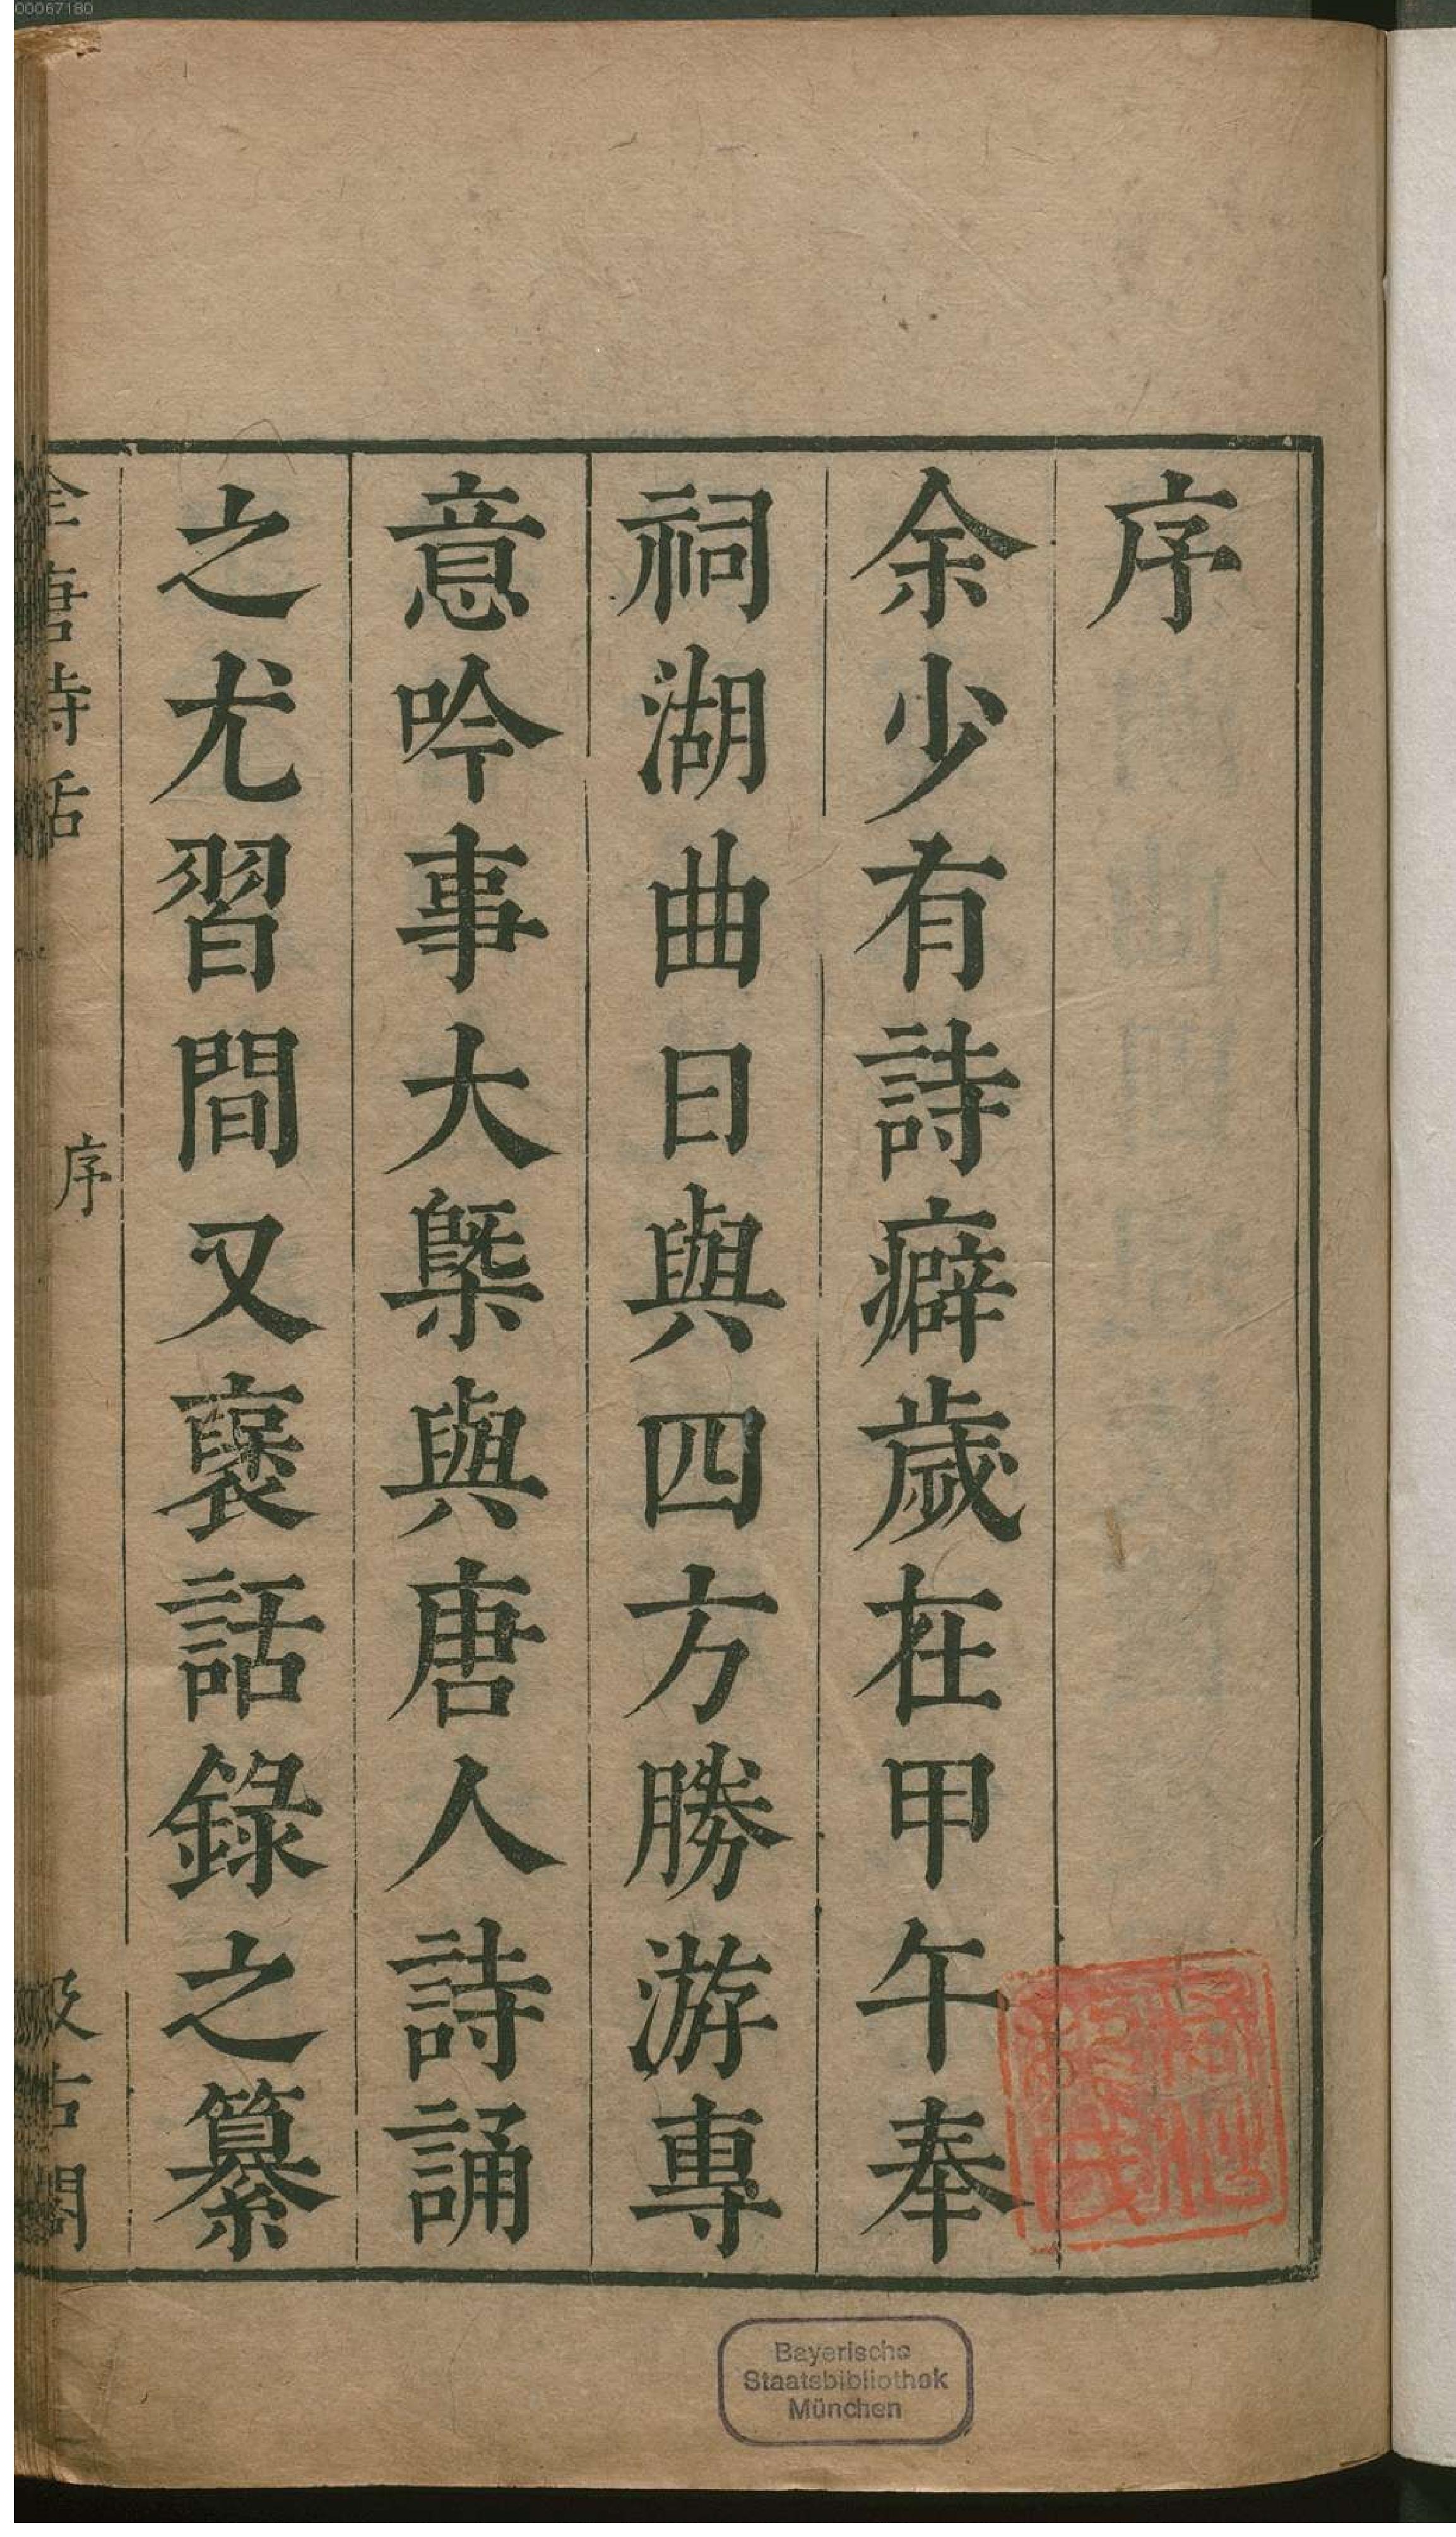 序
余少有詩癖歲在甲午奉
祠湖曲日與四方勝游專
意吟事大槩與唐人詩誦
之尤習間又裒話錄之纂
全唐詩話
序
汲古閣
Bayerische
Staatsbibliothek
München
00067180